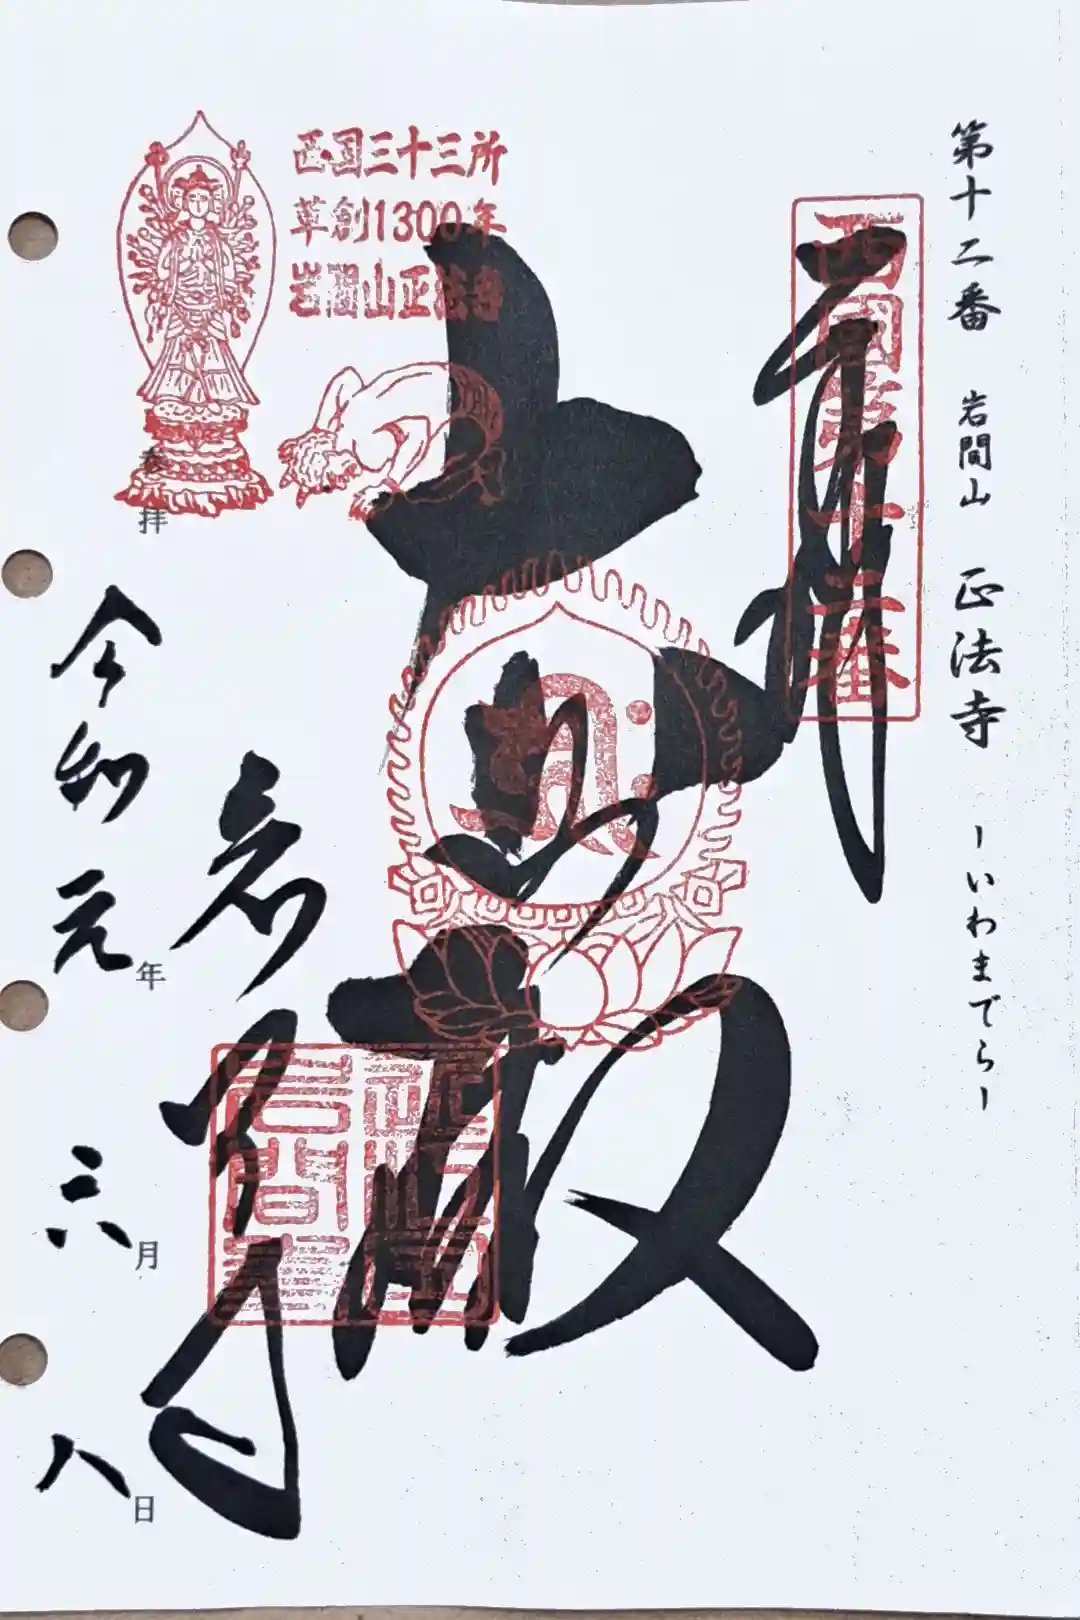 第十二番 岩間山 正法寺 ーいわまでらー
奉拝
西国第十二番
大悲殿
西国三十三所
草創1300年
岩間山正法寺
岩間寺
参拝
令和元年
六月
八日